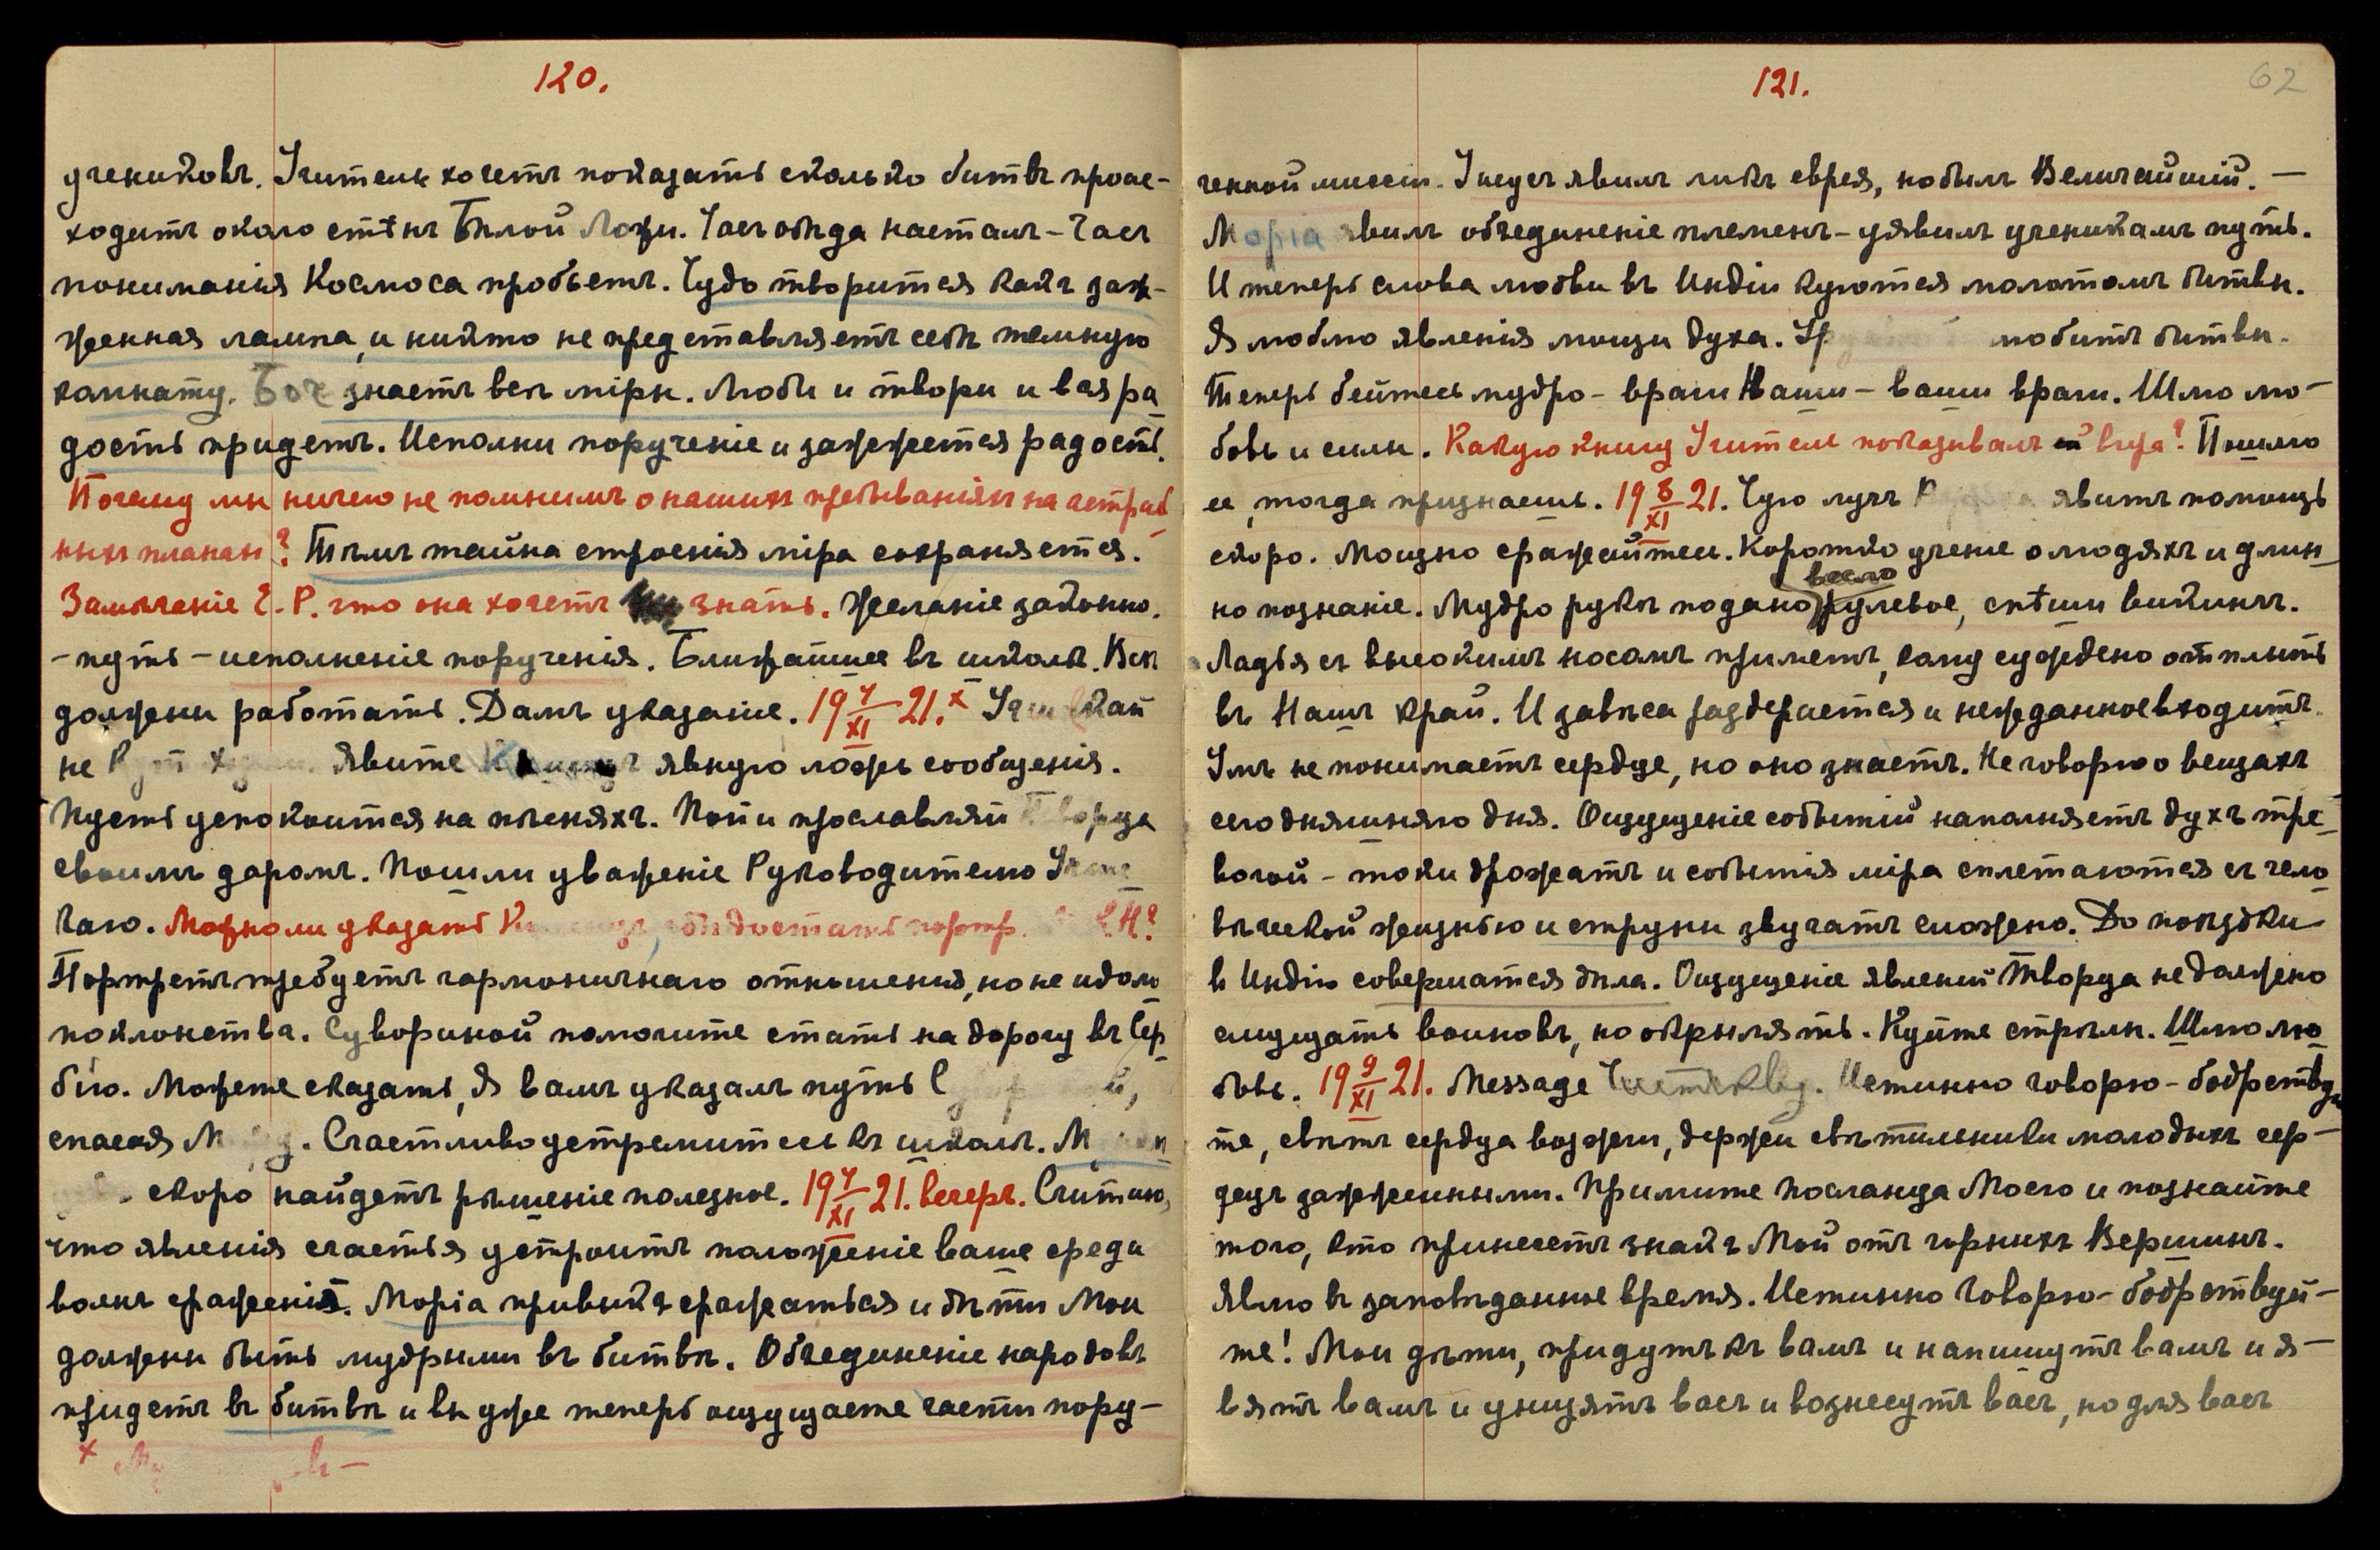 120.
учениковъ. Учитель хочетъ показать сколько битвъ проис-
ходитъ около стѣнъ Бѣлой Ложи. Часъ обѣда насталъ – часъ
пониманія Космоса пробьетъ. Чудо творится какъ заж-
женная лампа, и никто не представляетъ себѣ темную
комнату. Богъ знаетъ всѣ міры. Люби и твори и вся ра
дость придетъ. Исполни порученіе и зажжется радость.
Почему мы ничего не помнимъ о нашихъ пребываніяхъ на астраль
ныхъ планахъ? Тѣмъ тайна строенія міра сохраняется.
Замѣчаніе Е.Р. что она хочетъ знать. Желаніе законно.
– путь – исполненіе порученія. Ближайшее въ школѣ. Всѣ
должны работать. Дамъ указаніе. 19 7/XI 21. х
не явите явную ложь сообщенія.
Пусть успокоится на пѣсняхъ. Пой и прославляй Творца
своимъ даромъ. Пошли уваженіе Руководителю
каго. Можно ли указать достать портр. Е.И?
Портретъ требуетъ гармоничнаго отношенія, но не идоло
поклонства. Сувориной помогите стать на дорогу въ Сер
бію. Можете сказать, Я вамъ указалъ путь
спасая М. Счастливо устремитесь къ школѣ. М
скоро найдетъ рѣшеніе полезное. 19 7/XI 21. вечеръ. Считаю,
что явленія счастья устроитъ положеніе ваше среди
волнъ сраженія. Моріа привыкъ сражаться и дѣти Мои
должны быть мудрыми въ битвѣ. Объединеніе народовъ
придетъ въ битвѣ и вы уже теперь ощущаете части пору-
х
121.
62
ченной миссіи. Іисусъ явилъ ликъ еврея, но былъ Величайшій. –
Моріа явилъ объединеніе племенъ – уявилъ ученикамъ путь.
И теперь слова любви въ Индіи куются молотомъ битвы.
Я люблю явленія мощи духа. любитъ битвы.
Теперь бейтесь мудро – враги Наши – ваши враги. Шлю лю-
бовь и силы. Какую книгу Учитель показывалъ вчера? Пошлю
ее, тогда признаешь. 19 8/XI 21. Чую лучъ явитъ помощь
скоро. Мощно сражайтесь. Коротко ученіе о людяхъ и длин
но познаніе. Мудро рукѣ подано
весло
рулевое, спѣши викингъ.
Ладья съ высокимъ носомъ приметъ, кому суждено отплыть
въ Нашъ край. И завѣса раздерается и нежданное входитъ.
Умъ не понимаетъ сердце, но оно знаетъ. Не говорю о вещахъ
сегодняшняго дня. Ощущеніе событій наполняетъ духъ тре
вогой – токи дрожатъ и событія міра сплетаются съ чело
вѣческой жизнью и струны звучатъ сложно. До поѣздки
в Индію совершатся дѣла. Ощущеніе явленій Творца не должно
смущать воиновъ, но окрылять. Куйте стрѣлы. Шлю лю
бовь. 19 9/XI 21. Message Истинно говорю – бодрствуй
те, свѣтъ сердца возжги, держи свѣтильники молодыхъ сер-
децъ зажженными. Примите посланца Моего и познайте
того, кто принесетъ знакъ Мой отъ горныхъ Вершинъ.
Явлю въ заповѣданное время. Истинно говорю – бодрствуй-
те! Мои дѣти, придутъ къ вамъ и напишутъ вамъ и я-
вятъ вамъ и унизятъ васъ и вознесутъ васъ, но для васъ